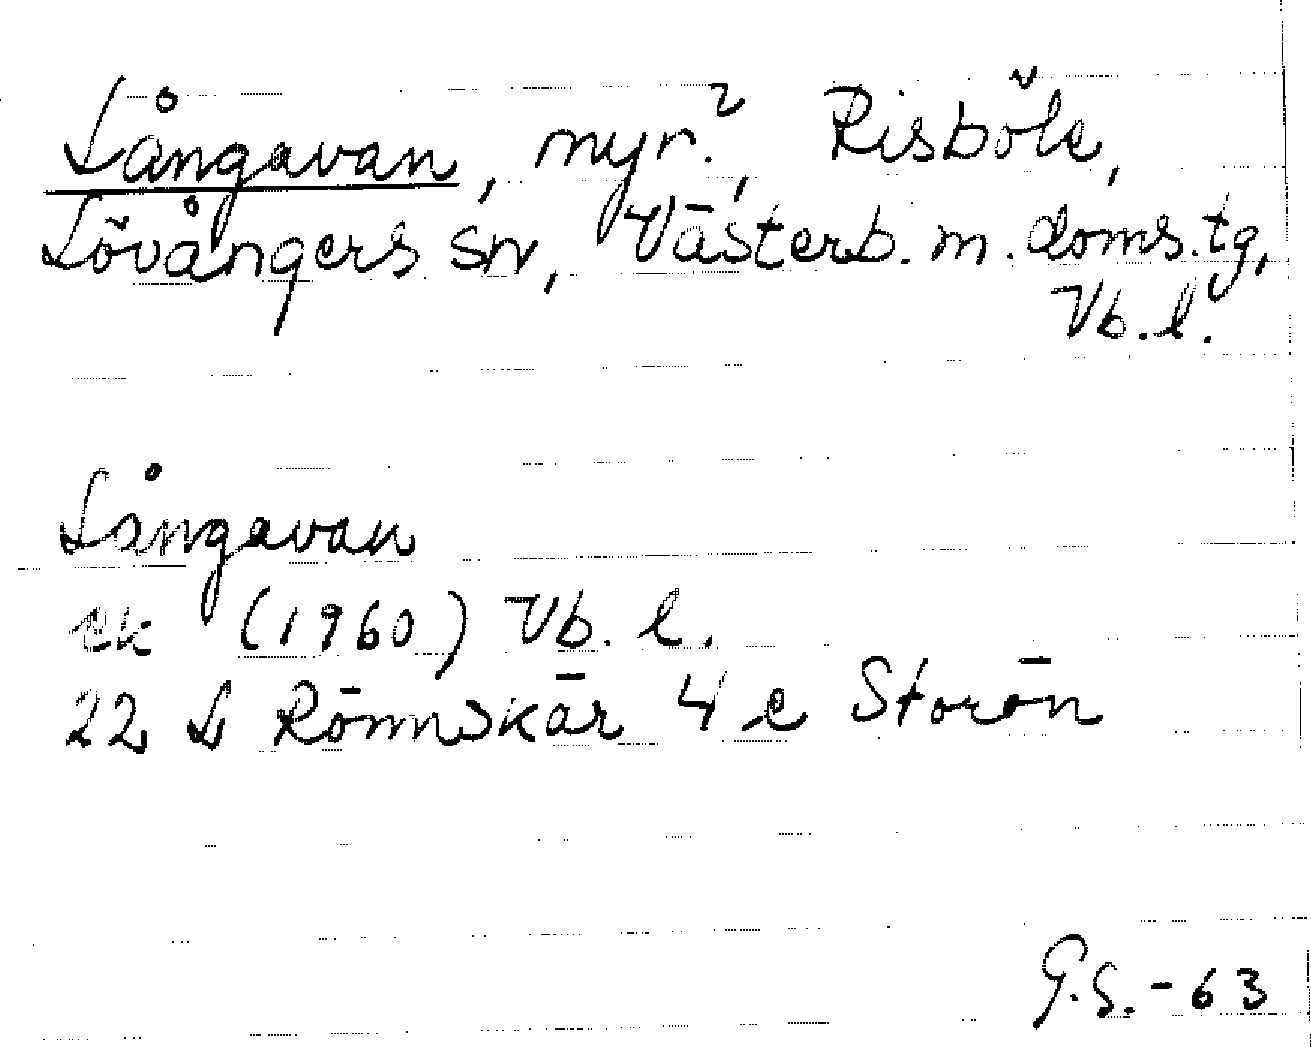 Långavan, myr?, Risböle,
Lövångers sn, Västerb. m. doms. tg,
Vb. l.
Långavan
ek (1960) Vb. l.
22 L Rönnskär 4 e Storön
G.S. - 63